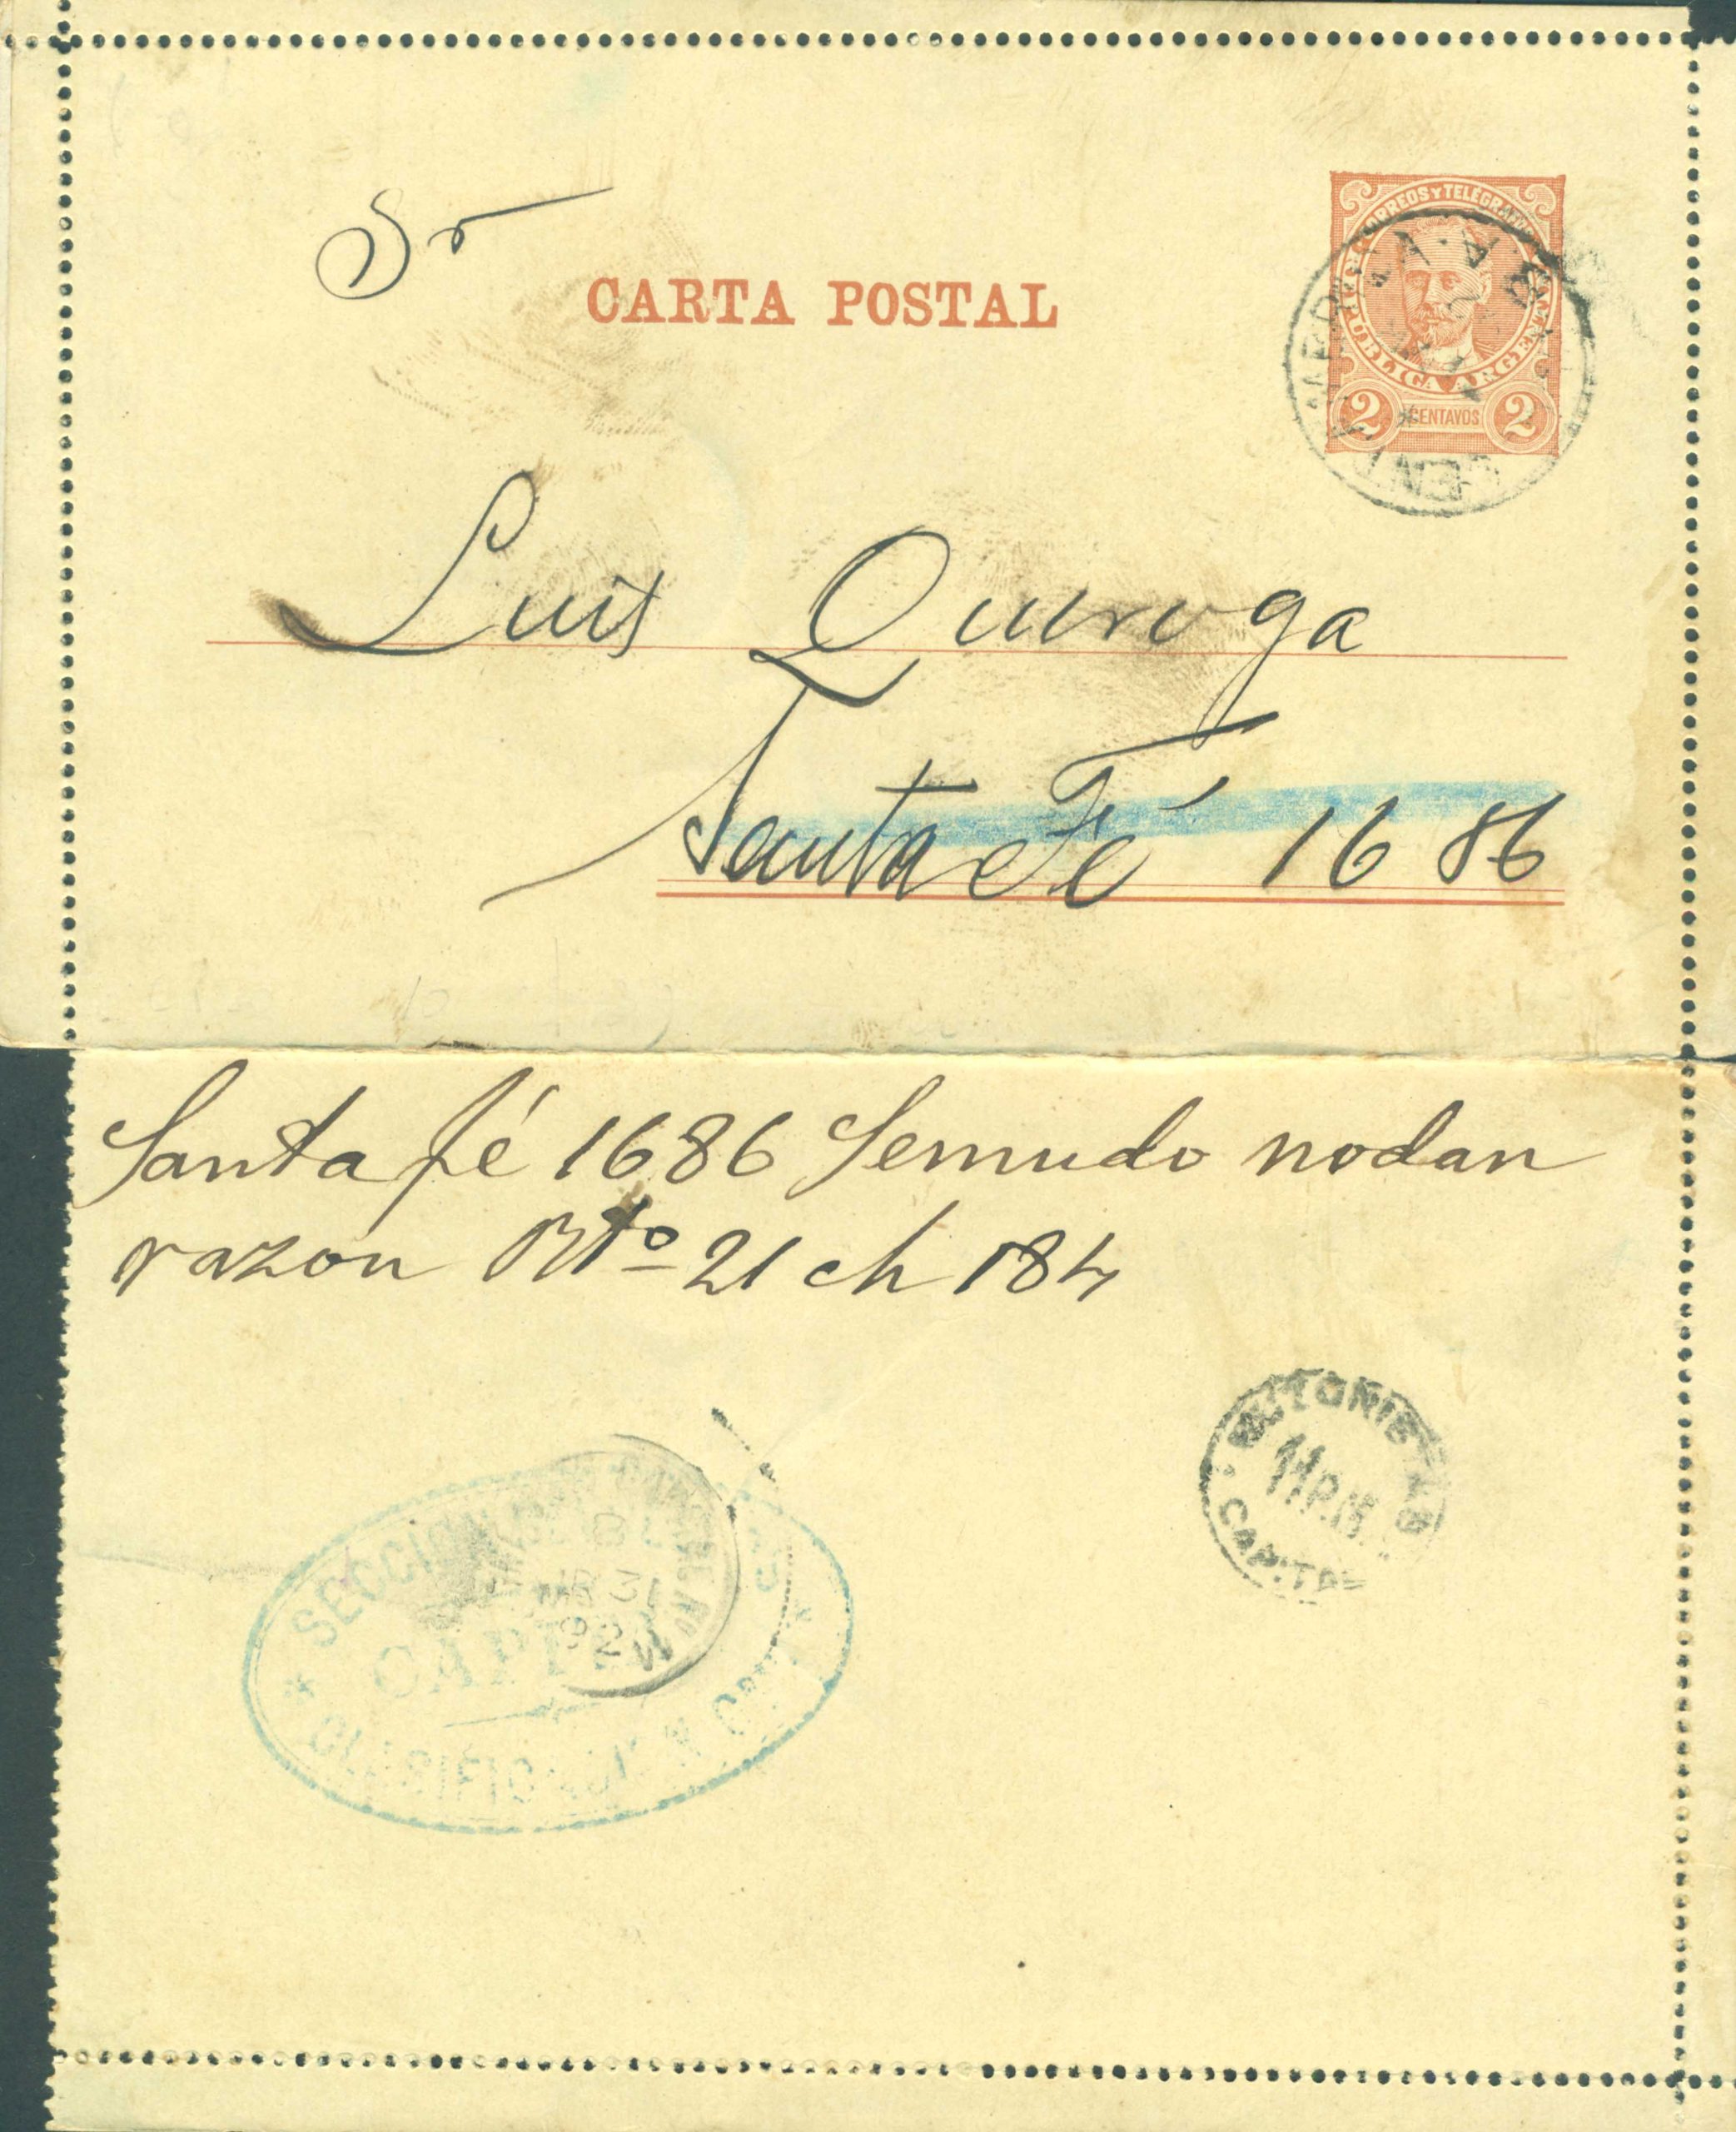 Sr
CARTA POSTAL
CORREOS Y TELEGRAFOS
REPUBLICA ARGENTINA
2 CENTAVOS 2
Luis Quiroga
Santa Fé 1686
Santa fé 1686 Semudo nodan
razon Bto 21 ch 184
11 P.M.
CAPITAL
SECCION
MR 31
92